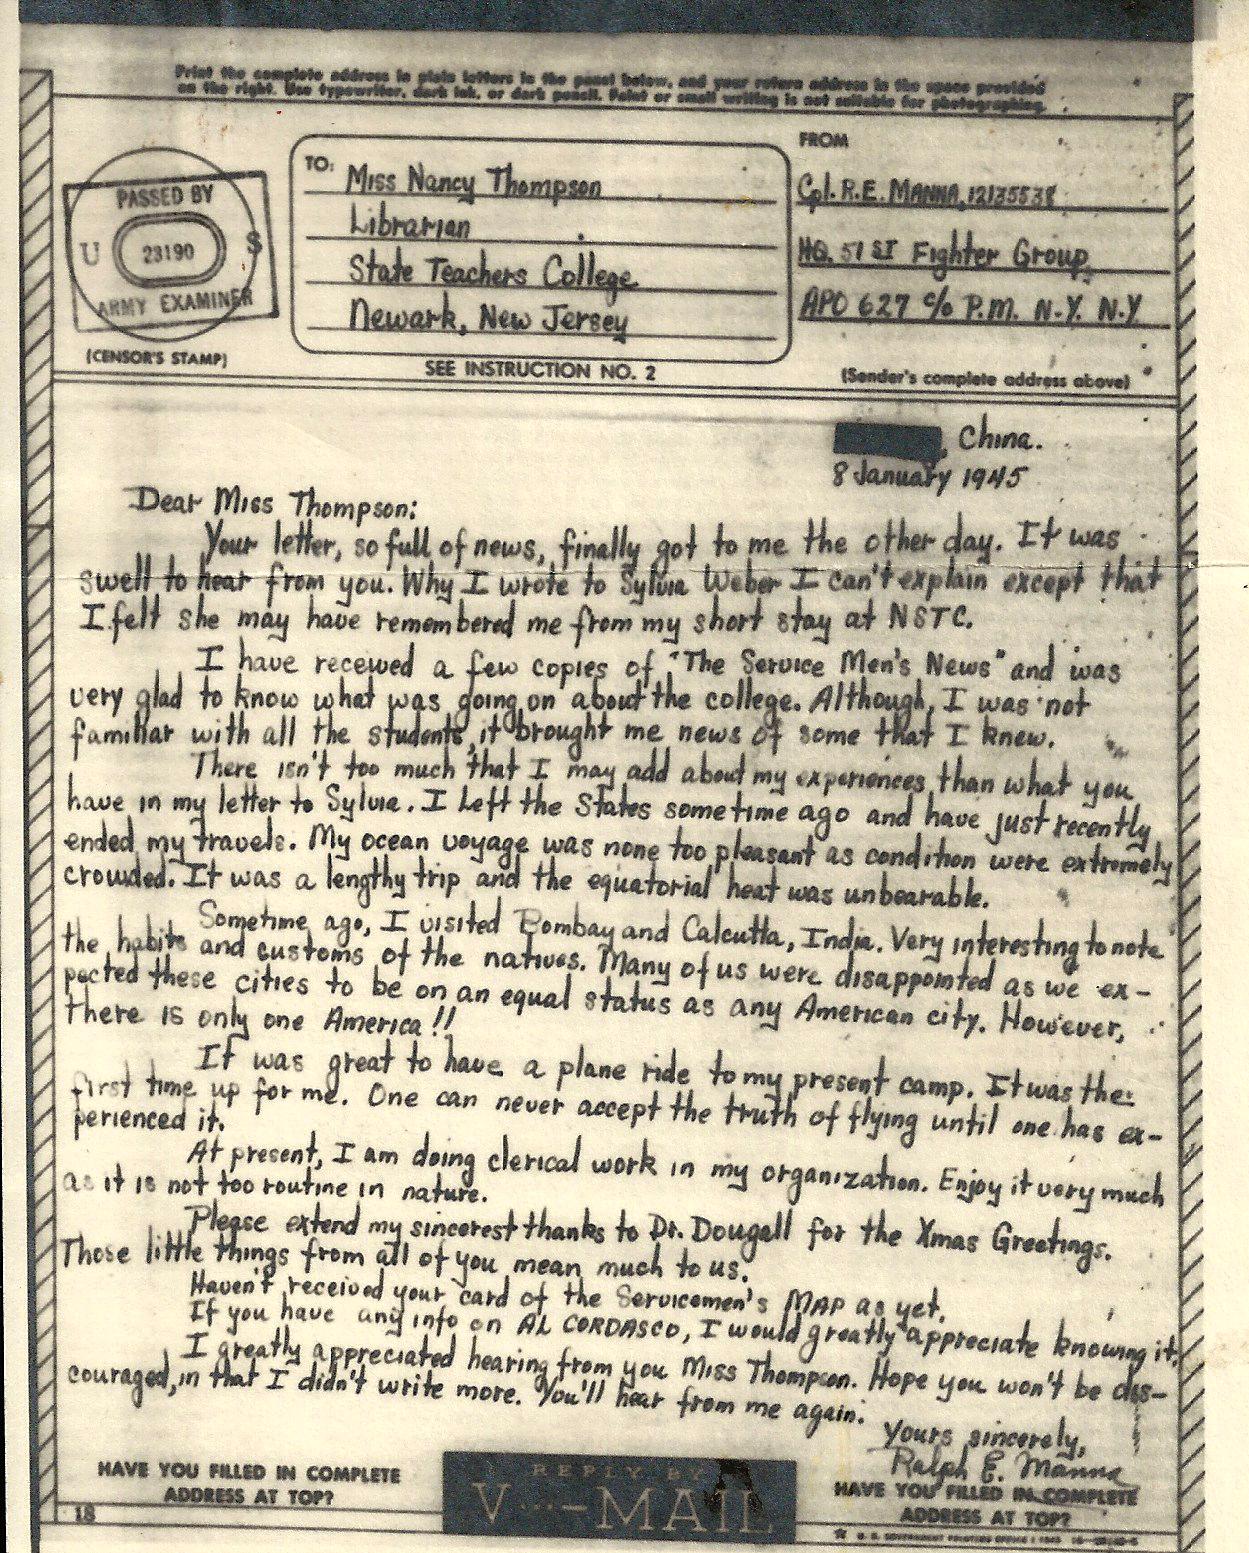 Print the complete address in plain letters in the panel below, and your return address in the space provided
on the right. Use typewriter, dark ink, or dark pencil. Faint or small writing is not suitable for photographing.
PASSED BY
U 23190 S
ARMY EXAMINER
(CENSOR'S STAMP)
TO:
Miss Nancy Thompson
Librarian
State Teachers College
Newark, New Jersey
SEE INSTRUCTION NO. 2
FROM
Cpl. R.E. MANNA, 12135538
HQ. 51ST Fighter Group
APO 627 c/o P.M. N.Y. N.Y
(Sender's complete address above)
, China.
8 January 1945
Dear Miss Thompson:
Your letter, so full of news, finally got to me the other day. It was
swell to hear from you. Why I wrote to Sylvia Weber I can't explain except that
I felt she may have remembered me from my short stay at NSTC.
I have received a few copies of "The Service Men's News" and was
very glad to know what was going on about the college. Although, I was not
familiar with all the students, it brought me news of some that I knew.
There isn't too much that I may add about my experiences than what you
have in my letter to Sylvia. I left the States sometime ago and have just recently
ended my travels. My ocean voyage was none too pleasant as condition were extremely
crowded. It was a lengthy trip and the equatorial heat was unbearable.
Sometime ago, I visited Bombay and Calcutta, India. Very interesting to note
the habits and customs of the natives. Many of us were disappointed as we ex-
pected these cities to be on an equal status as any American city. However,
there is only one America!!
It was great to have a plane ride to my present camp. It was the
first time up for me. One can never accept the truth of flying until one has ex-
perienced it.
At present, I am doing clerical work in my organization. Enjoy it very much
as it is not too routine in nature.
Please extend my sincerest thanks to Dr. Dougall for the Xmas Greetings.
Those little things from all of you mean much to us.
Haven't received your card of the Servicemen's MAP as yet.
If you have any info on AL CORDASCO, I would greatly appreciate knowing it.
I greatly appreciated hearing from you Miss Thompson. Hope you won't be dis-
couraged, in that I didn't write more. You'll hear from me again.
Yours sincerely,
Ralph E. Manna
HAVE YOU FILLED IN COMPLETE
ADDRESS AT TOP?
REPLY BY
V···—MAIL
HAVE YOU FILLED IN COMPLETE
ADDRESS AT TOP?
18